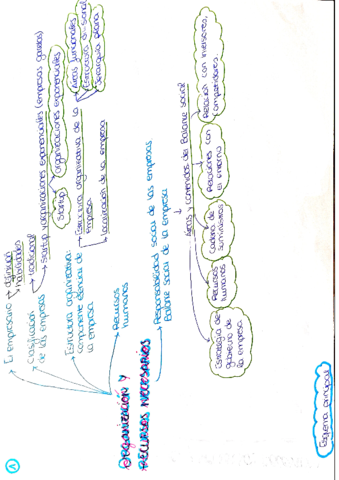 1
ORGANIZACIÓN Y
RECURSOS NECESARIOS
El empresario
definición
habilidades
Clasificación
de las empresas
tradicional
Startup y organizaciones exponenciales (empresas gacelas)
Startup
organizaciones exponenciales
Estructura organizativa:
componente esencial de
la empresa
Estructura organizativa de la
empresa
áreas funcionales
jerarquía plana
Localización de la empresa
Recursos
humanos
Responsabilidad social de las empresas
Balance social de la empresa
Áreas y contenidos del Balance social
Estrategia de
gobierno de
la empresa
Recursos
humanos
Cadena de
suministros
Relaciones con
el entorno
Relación con inversores,
competidores.
Esquema principal